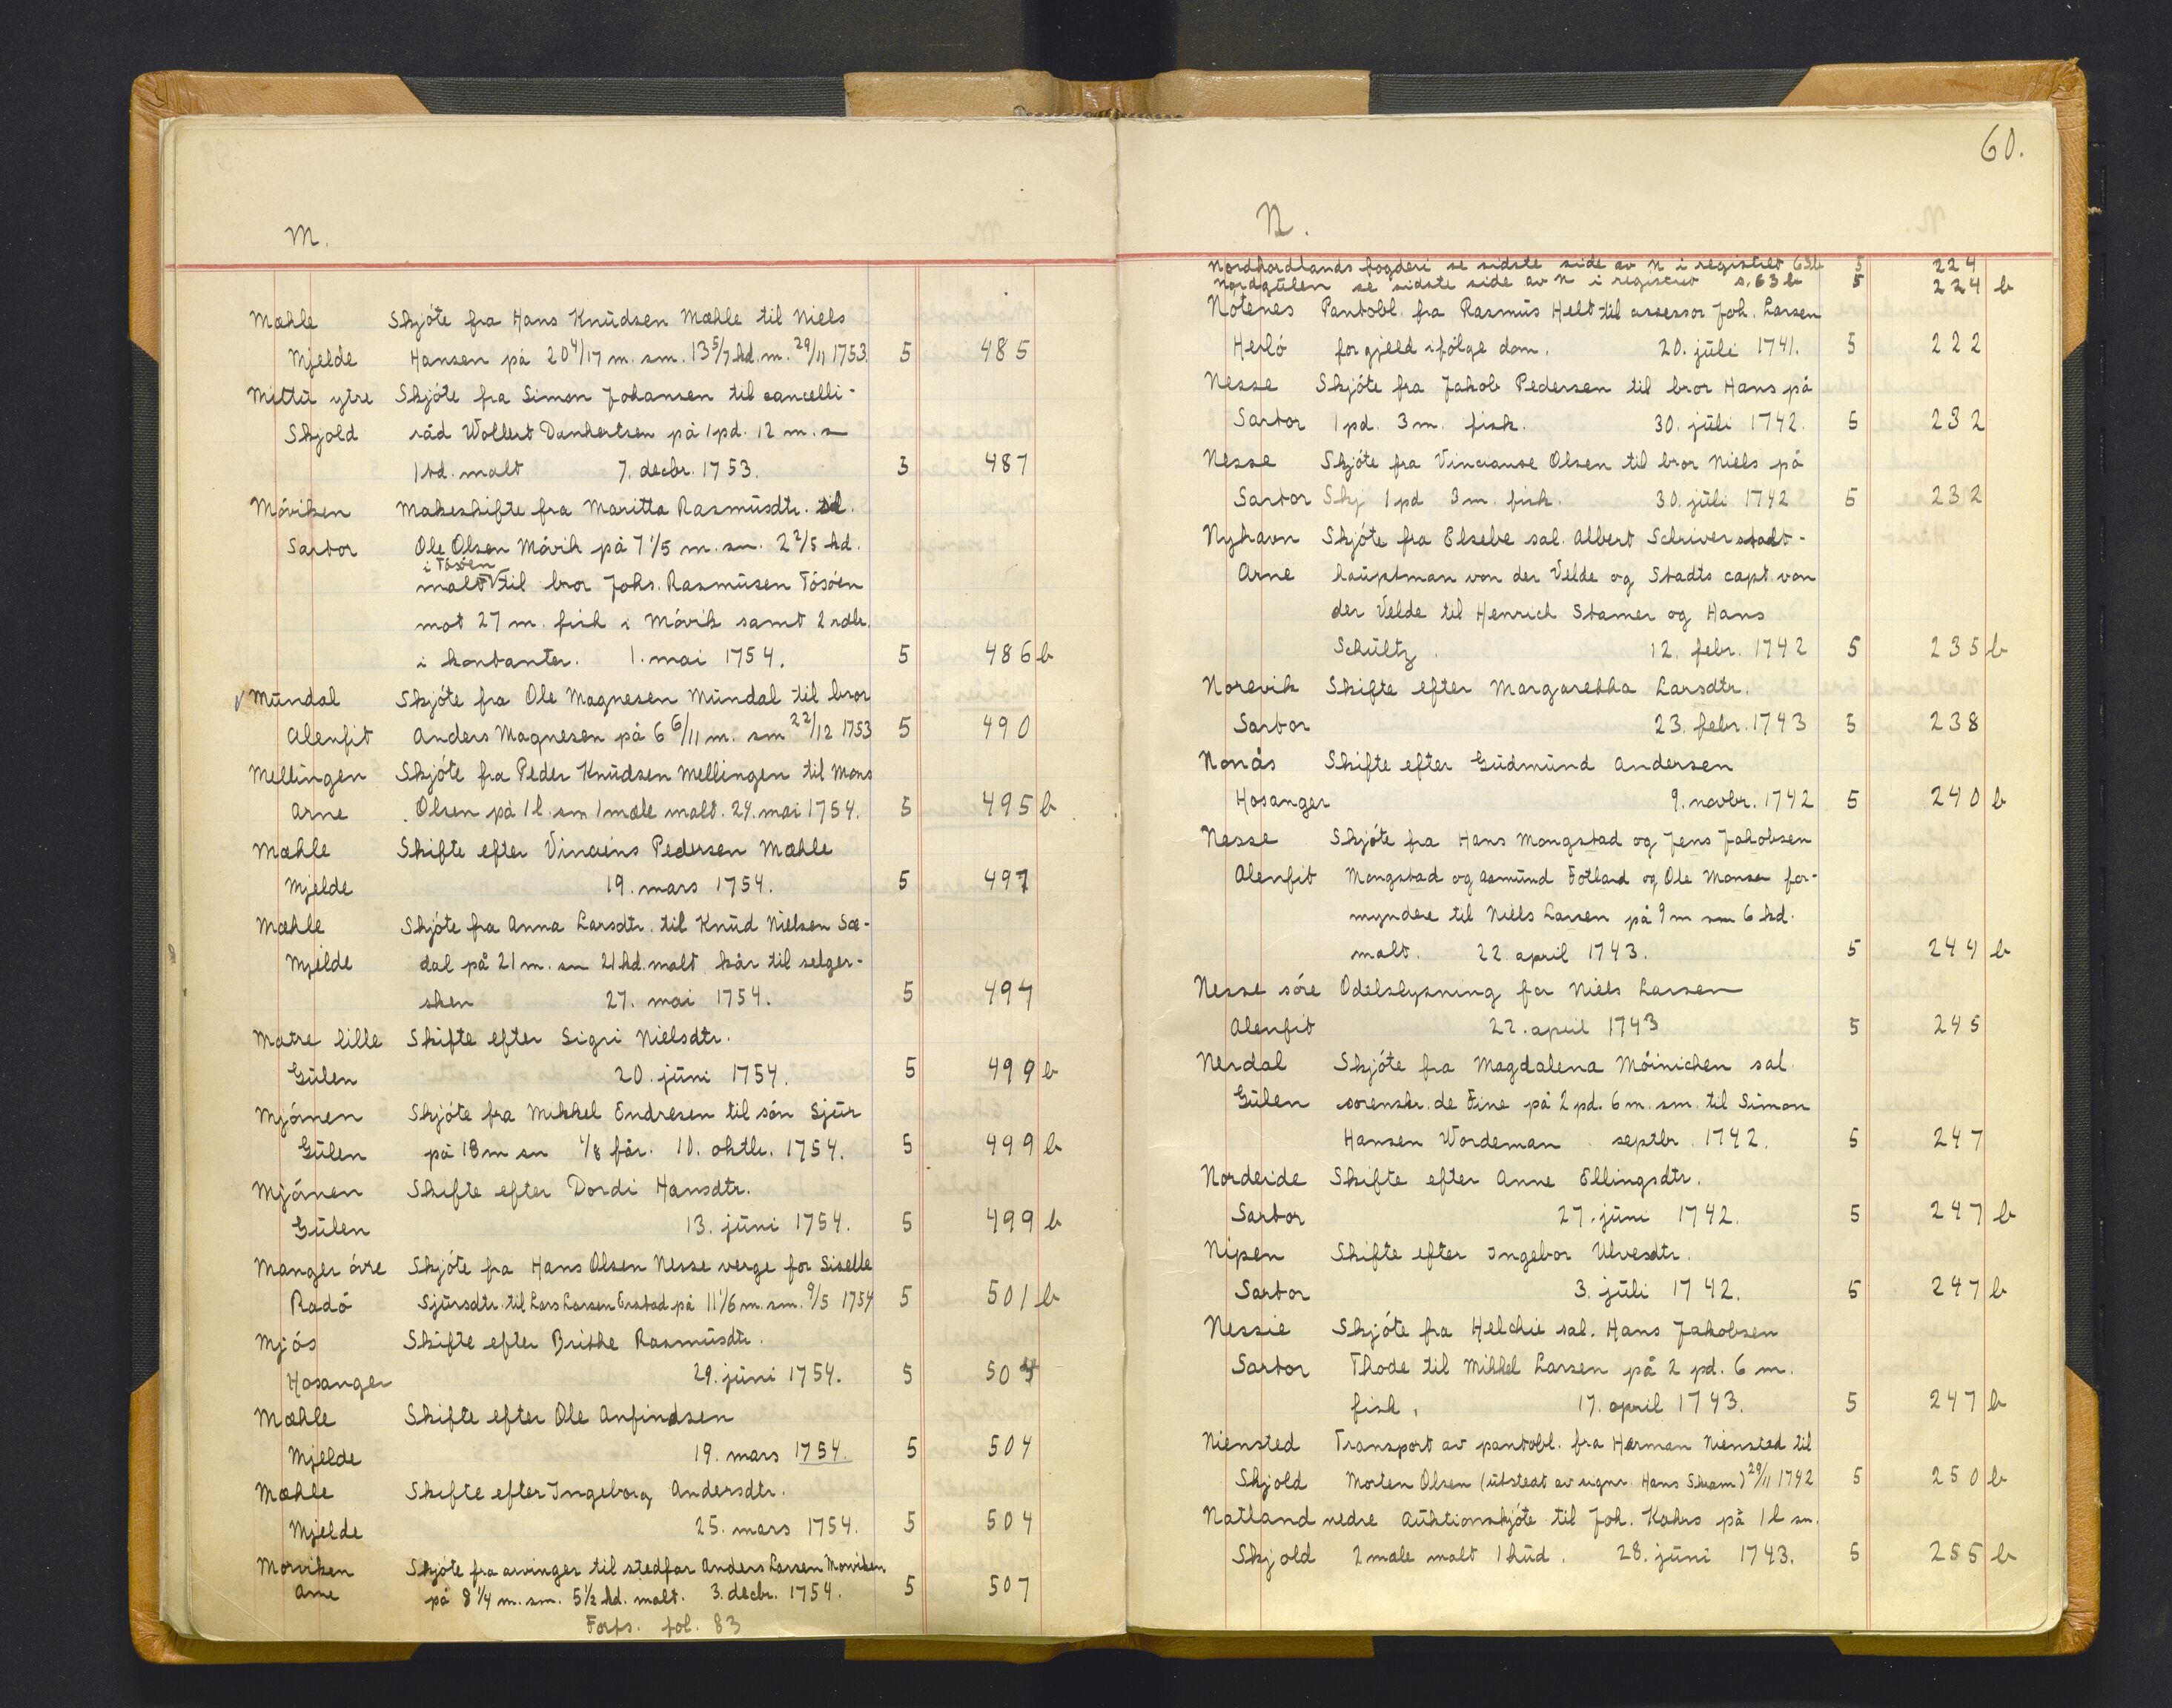 M.
Mæhle Skjöte fra Hans Knudsen Mæhle til Niels
Mjelde Hansen på 20 4/17 m. sm. 13 5/7 kd. m. 29/11 1753. 5 485
Mittü ytre Skjöte fra Simon Johansen til cancelli-
Skjold råd Wollert Dankertsen på 1 pd. 12 m. s
1 td. malt 7. decbr. 1753. 5 487
Möviken Makeskifte fra Maritta Rasmüsdtr. til
Sartor Ole Olsen Mövik på 7 1/5 m. sm. 2 2/5 kd.
i Tösöen
malt til bror Johs. Rasmüsen Tösöen
mot 27 m. fisk i Mövik samt 2 rdlr.
i kontanter. 1. mai 1754. 5 486 b
Mündal Skjöte fra Ole Magnesen Mündal til bror
Alenfit Anders Magnesen på 6 6/11 m. sm 22/12 1753 5 490
Mellingen Skjöte fra Peder Knüdsen Mellingen til Mons
Arne Olsen på 1 l. sm 1 mæle malt. 24. mai 1754. 5 495 b
Mæhle Skifte efter Vinciens Pedersen Mæhle
Mjelde 19. mars 1754. 5 497
Mæhle Skjöte fra Anna Larsdtr. til Knüd Nielsen Sæ-
Mjelde dal på 21 m. sm 21 kd. malt kår til selger-
sken 27. mai 1754. 5 497
Matre lille Skifte efter Sigri Nielsdtr.
Gülen 20. jüni 1754. 5 499 b
Mjömen Skjöte fra Mikkel Endresen til sön Sjür
Gülen på 18 m sm 1/8 får. 10. oktbr. 1754. 5 499 b
Mjömen Skifte efter Dordi Hansdtr.
Gülen 13. jüni 1754. 5 499 b
Manger övre Skjöte fra Hans Olsen Nesse verge for Siselle
Radö Sjürsdtr. til Lars Larsen Erstad på 11 1/6 m. sm. 9/5 1754 5 501 b
Mjös Skifte efter Brithe Rasmüsdtr.
Hosanger 29. jüni 1754. 5 504
Mæhle Skifte efter Ole Anfindsen
Mjelde 19. mars 1754. 5 504
Mæhle Skifte efter Ingeborg Andersdtr.
Mjelde 25. mars 1754. 5 504
Morviken Skjöte fra arvinger til stedfar Anders Larsen Morviken
Arne på 8 1/4 m. sm. 5 1/2 kd. malt. 3. decbr. 1754. 5 507
Forts. fol. 83
60.
N.
Nordhordlands fogderi se sidste side av N i registret 63b 5 224
Nordgülen se sidste side av N i registret s. 63 b 5 224 b
Notenes Pantobl. fra Rasmüs Helt til assessor Joh. Larsen
Herlö for gjeld ifölge dom. 20. jüli 1741. 5 222
Nesse Skjöte fra Jakob Pedersen til bror Hans på
Sartor 1 pd. 3 m. fisk. 30. jüli 1742. 5 232
Nesse Skjöte fra Vinciause Olsen til bror Niels på
Sartor Skj 1 pd 3 m. fisk. 30. jüli 1742 5 232
Nyhavn Skjöte fra Elsebe sal. Albert Schriver stadt-
Arne haüptman von der Velde og Stadts capt. von
der Velde til Henrich Stamer og Hans
Schültz. 12. febr. 1742 5 235 b
Norevik Skifte efter Margarethha Larsdtr.
Sartor 23. febr. 1743 5 238
Nonås Skifte efter Güdmünd Andersen
Hosanger 9. novbr. 1742 5 240 b
Nesse Skjöte fra Hans Mongstad og Jens Jakobsen
Alenfit Mongstad og Asmünd Fotland og Ole Monsen for-
myndere til Niels Larsen på 9 m sm 6 kd.
malt. 22 april 1743. 5 244 b
Nesse söre Odelslysning for Niels Larsen
Alenfit 22. april 1743 5 245
Nerdal Skjöte fra Magdalena Möinichen sal.
Gülen sorenskr. de Fine på 2 pd. 6 m. sm. til Simon
Hansen Wordeman. septbr. 1742. 5 247
Nordeide Skifte efter Anne Ellingsdtr.
Sartor 27. jüni 1742. 5 247 b
Nipen Skifte efter Ingebor Ulvesdtr.
Sartor 3. jüli 1742. 5 247 b
Nessie Skjöte fra Helchie sal. Hans Jakobsen
Sartor Thode til Mikkel Larsen på 2 pd. 6 m.
fisk. 17. april 1743. 5 247 b
Niensted Transport av pantobl. fra Herman Niensted til
Skjold Morten Olsen (ütstedt av signr. Hans Skram) 29/11 1742 5 250 b
Natland nedre Aüktionskjöte til Joh. Kahrs på 1 l sm.
Skjold 2 mæle malt 1 hüd. 28. jüni 1743. 5 255 b